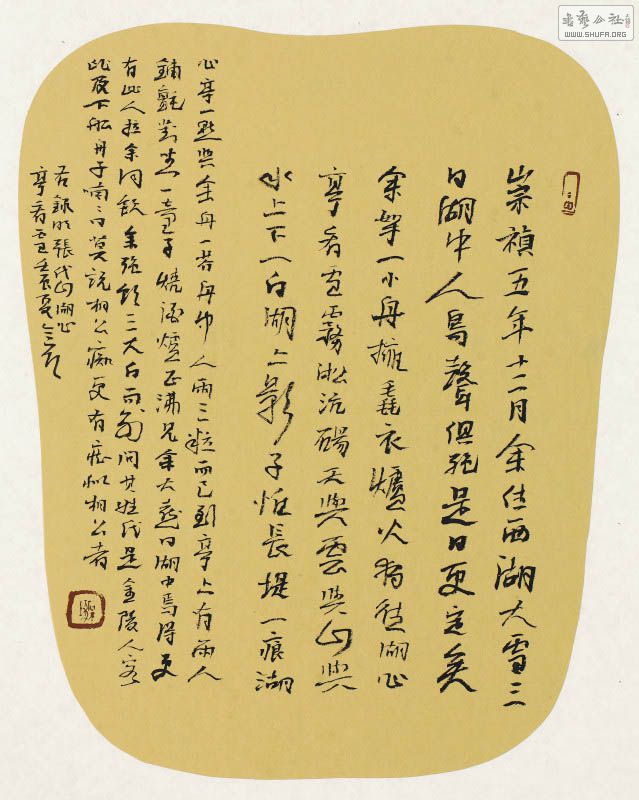 書藝公社
WWW.SHUFA.ORG
崇禎五年十二月余住西湖大雪三
日湖中人鳥聲俱絕是日更定矣
余拏一小舟擁毳衣爐火獨往湖心
亭看雪霧淞沆碭天與雲與山與
水上下一白湖上影子惟長堤一痕湖
心亭一點與余舟一芥舟中人兩三粒而已到亭上有兩人
鋪氈對坐一童子燒酒爐正沸見余大喜曰湖中焉得更
有此人拉余同飲余強飲三大白而別問其姓氏是金陵人客
此及下船舟子喃〻曰莫說相公癡更有癡似相公者
右錄明張岱湖心
亭看雪壬辰夏